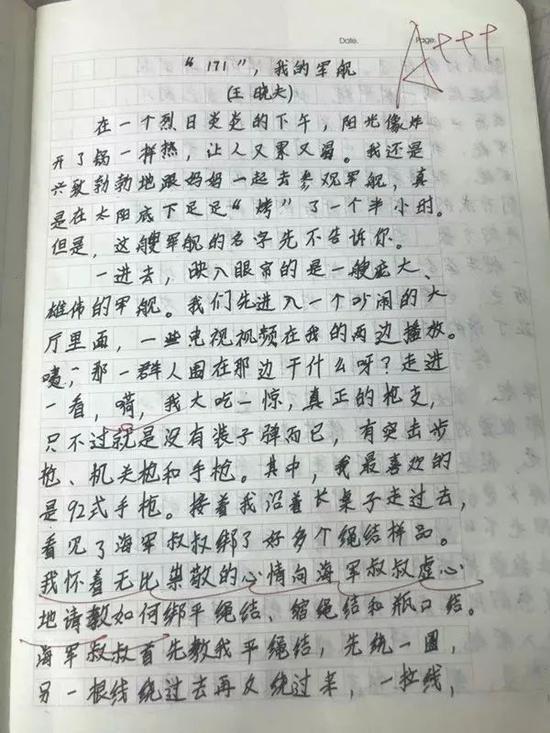 Date.
Page.
A+++
"171"，我的军舰
(王晓夫)
在一个烈日炎炎的下午，阳光像炸
开了锅一样热，让人又累又渴。我还是
兴致勃勃地跟妈妈一起去参观军舰，真
是在太阳底下足足"烤"了一个半小时。
但是，这艘军舰的名字先不告诉你。
一进去，映入眼帘的是一艘庞大、
雄伟的军舰。我们先进入一个吵闹的大
厅里面，一些电视视频在我的两边播放。
噫，那一群人围在那边干什么呀？走进
一看，嗬，我大吃一惊，真正的枪支，
只不过就是没有装子弹而已，有突击步
枪、机关枪和手枪。其中，我最喜欢的
是92式手枪。接着我沿着长桌子走过去，
看见了海军叔叔绑了好多个绳结样品。
我怀着无比崇敬的心情向海军叔叔虚心
地请教如何绑平绳结、缩绳结和瓶口结。
海军叔叔首先教我平绳结，先绕一圈，
另一根线绕过去再又绕过来，一拉线，